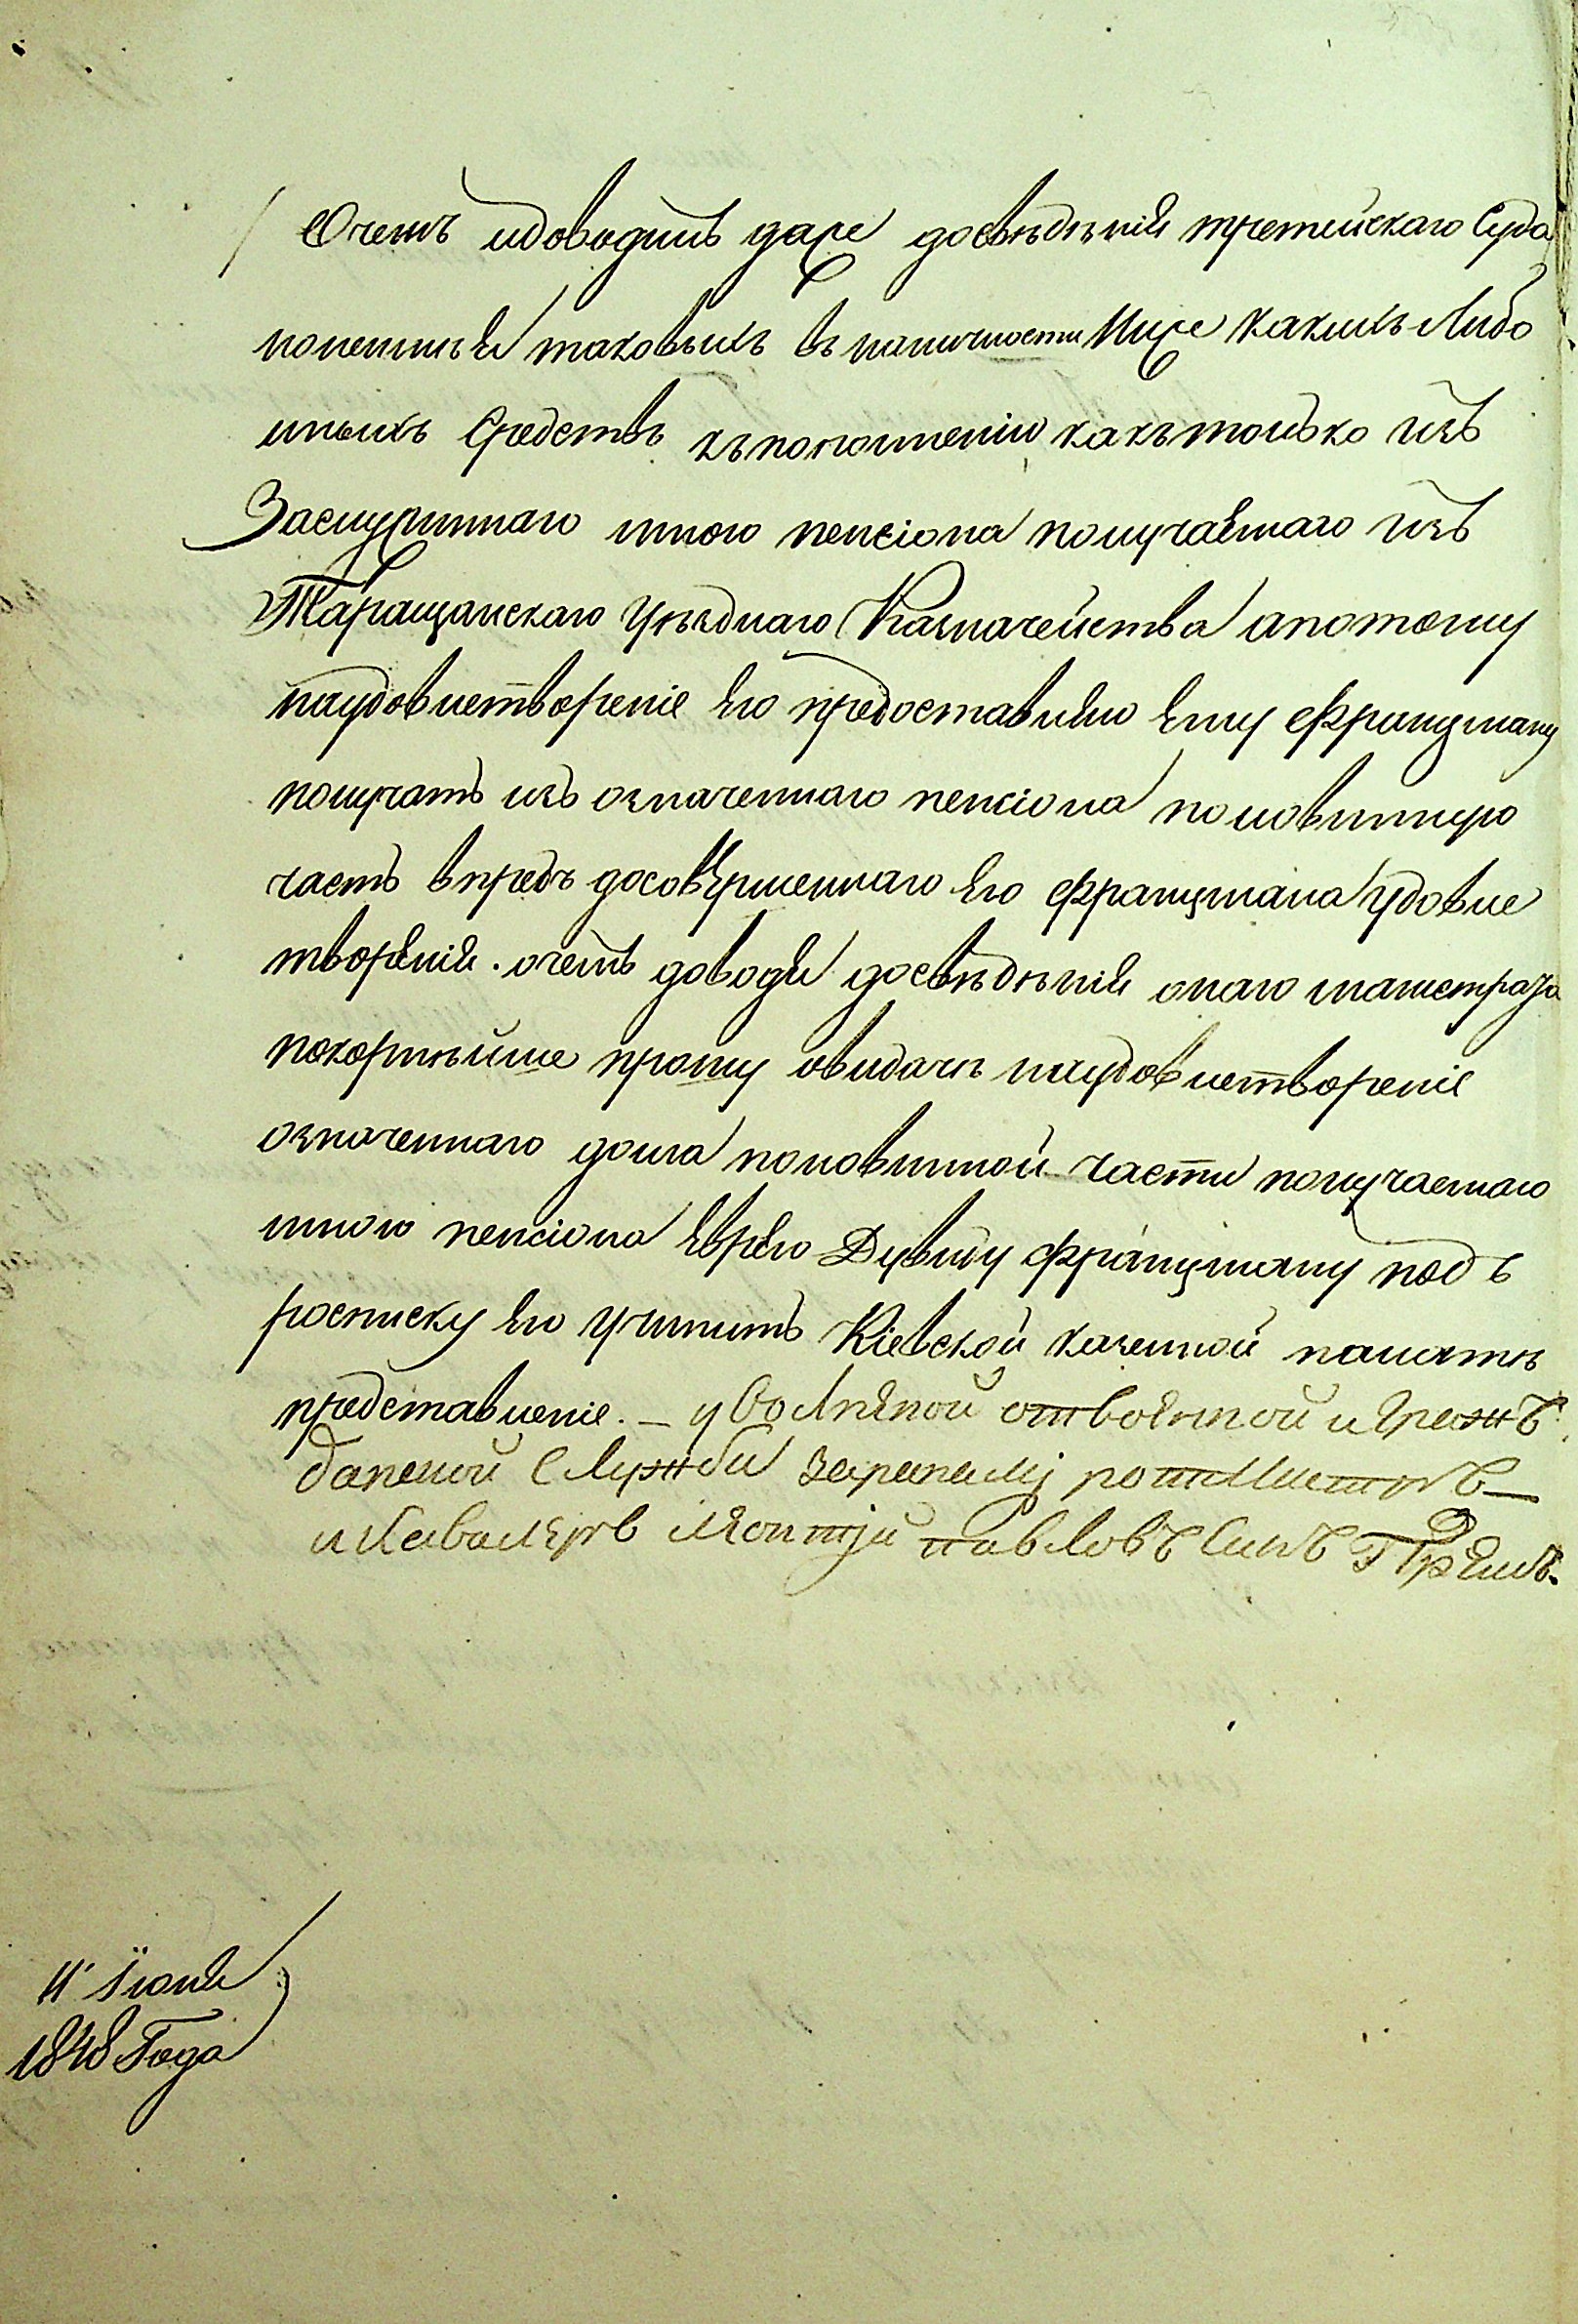 О чемъ идоводилъ даже досвѣдѣнія третейскаго Суда
понеимѣя таковыхъ въ наличности Ниже какихъ Либо
иныхъ Средствъ къ пополненію какътолько изъ
Заслуженнаго мною пенсіона получаемаго изъ
Таращанскаго Уѣзднаго Казначейства апотому
наудовлетвореніе Его предоставляю Ему Францману
получать изъ означеннаго пенсіона половинную
часть впредъ досовершеннаго Его Францмана Удовле
творенія. очемъ доводя досвѣдѣнія онаго магистрата
покорнѣйше прошу овидачѣ наудовлетвореніе
означеннаго долга половинной части получаемаго
мною пенсіона Еврею Дувиду Францману подъ
росписку Его Учинить Кіевской казенной палатѣ
представленіе. — уволненой отвоенной и Граж
данской Службы Заранами ротмистръ
и Кавалеръ Леонтій павловъ Синъ
11 Іюня
1848 Года